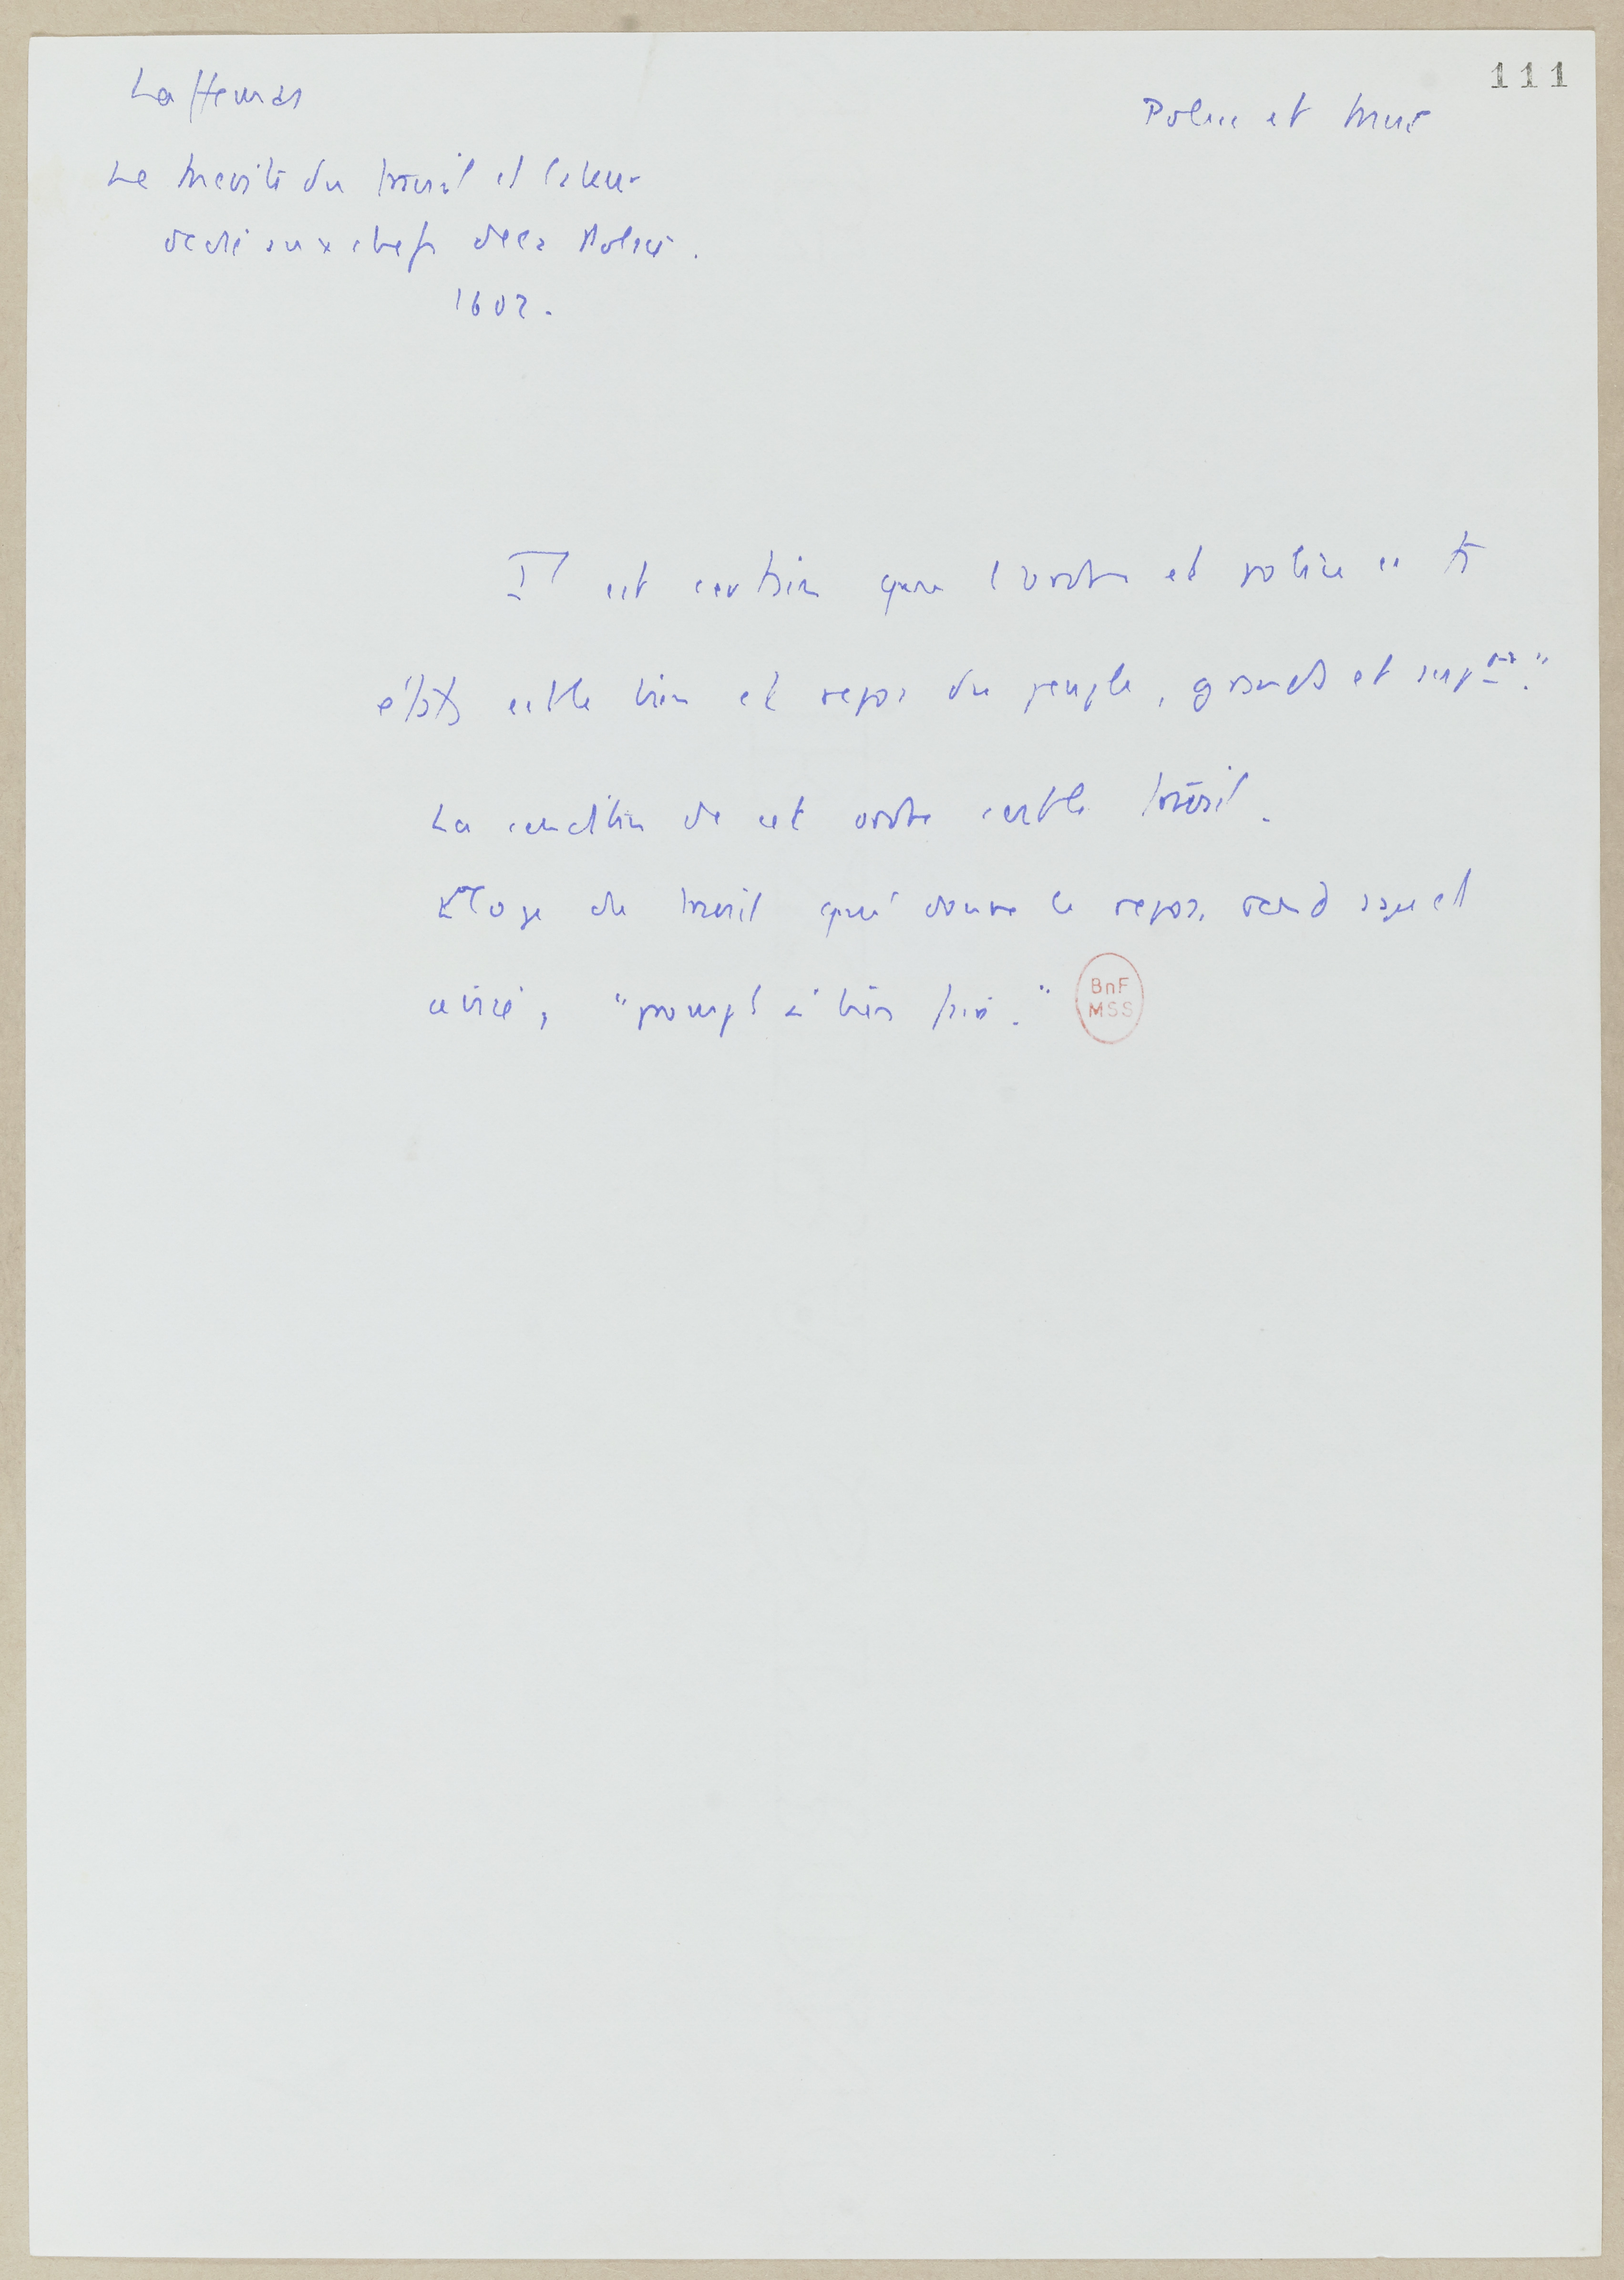 111
Laffemas
Police et
Le mérite du travail et labeur
dédié aux chefs de la Police.
1602.
Il est certain que l'ordre et police es
états est le bien et repos du peuple, grands et
La condition de cet ordre c'est le travail.
Eloge du travail qui donne le repos, rend sage et
avisé, "prompt à bien faire."
BnF
MSS